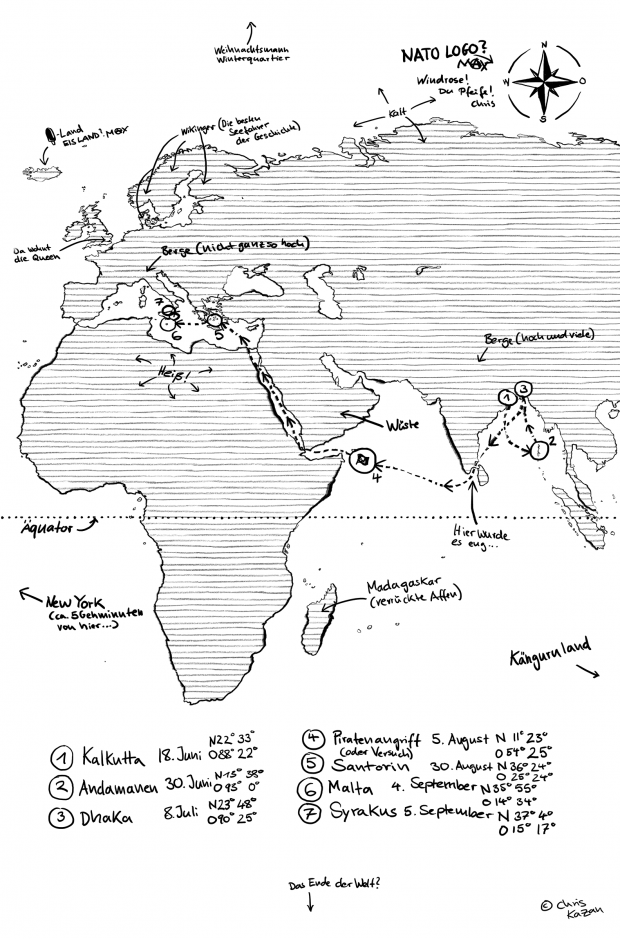 Weihnachtsmann
Winterquartier
NATO LOGO?
MAX
Windrose!
Du Pfeife!
Chris
N
W
O
S
Kalt
-Land
EISLAND! MAX
Wikinger (Die besten
Seefahrer
der Geschichte)
Da wohnt
die Queen
Berge (nicht ganz so hoch)
7
6
5
Heiß!
Berge (hoch und viele)
1
3
2
Wüste
4
Äquator
Hier wurde
es eng...
New York
(ca. 5 Gehminuten
von hier...)
Madagaskar
(verrückte Affen)
Känguruland
1 Kalkutta 18. Juni N22° 33°
O88° 22°
2 Andamanen 30. Juni N13° 38°
O 93° 0°
3 Dhaka 8. Juli N23° 48°
O90° 25°
4 Piratenangriff 5. August N 11° 23°
(oder Versuch) O 54° 25°
5 Santorin 30. August N 36° 24°
O 25° 24°
6 Malta 4. September N 35° 55°
O 14° 34°
7 Syrakus 5. September N 37° 4°
O 15° 17°
Das Ende der Welt?
© Chris
Kazan